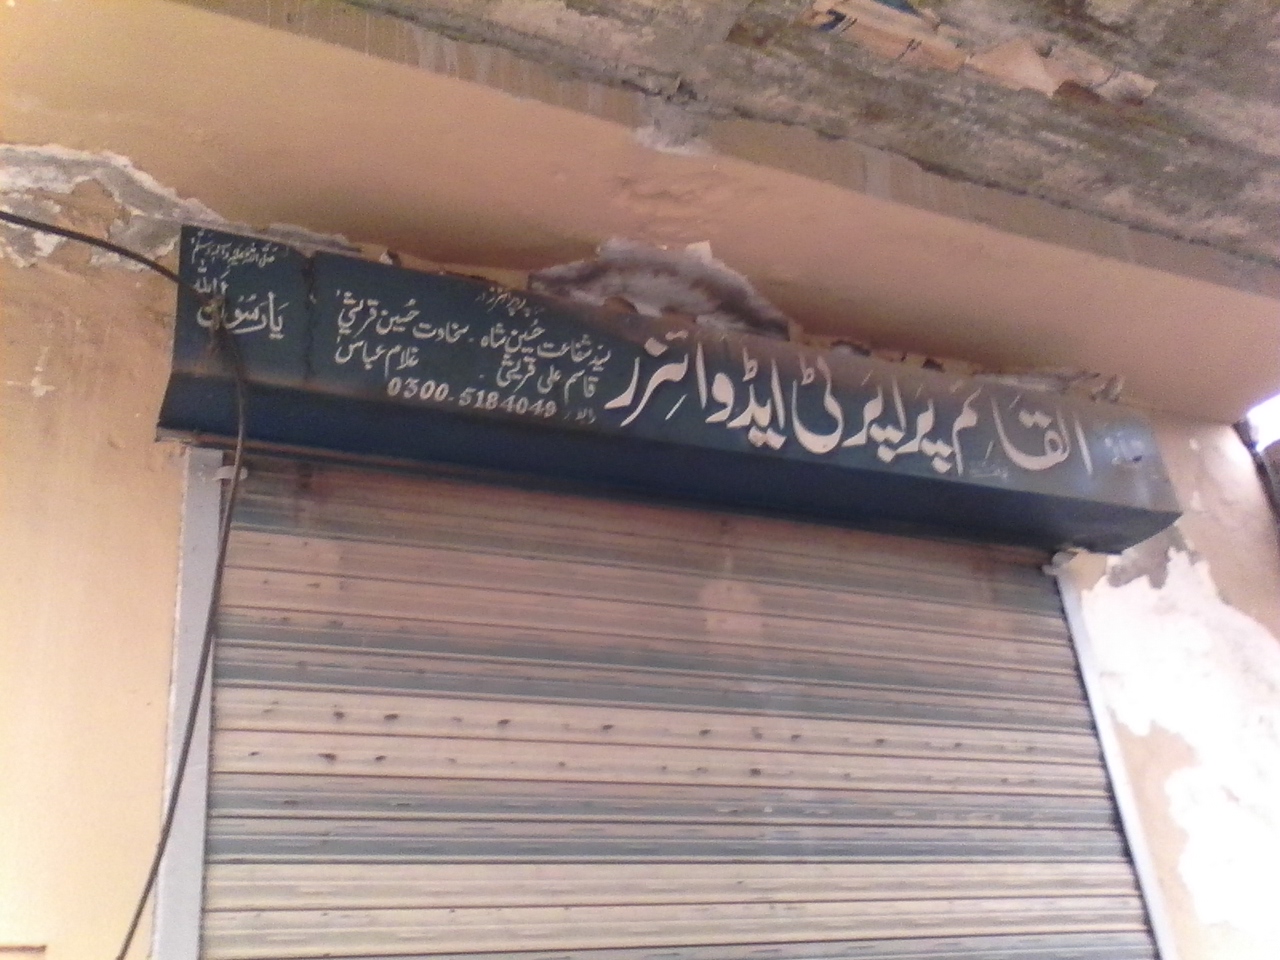 القائم پراپرٹی ایڈوائزر
پروپرائٹرز
سید شفاعت حسین شاہ - سخاوت حسین قریشی
قاسم علی قریشی - غلام عباس
0300-5184049
صلی اللہ علیہ وآلہ وسلم
یا رسول اللہ